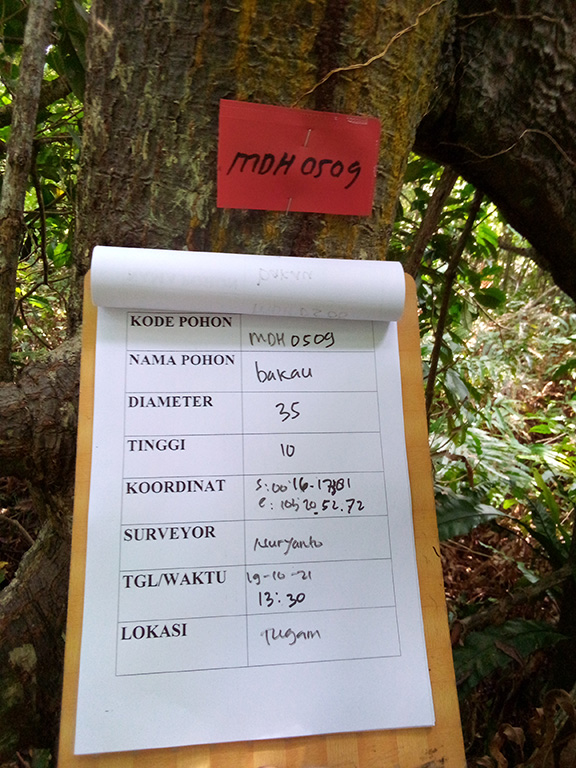 MDH 0509
KODE POHON MDH 0509
NAMA POHON bakau
DIAMETER 35
TINGGI 10
KOORDINAT
SURVEYOR Nuryanto
TGL/WAKTU 19-10-21
13:30
LOKASI